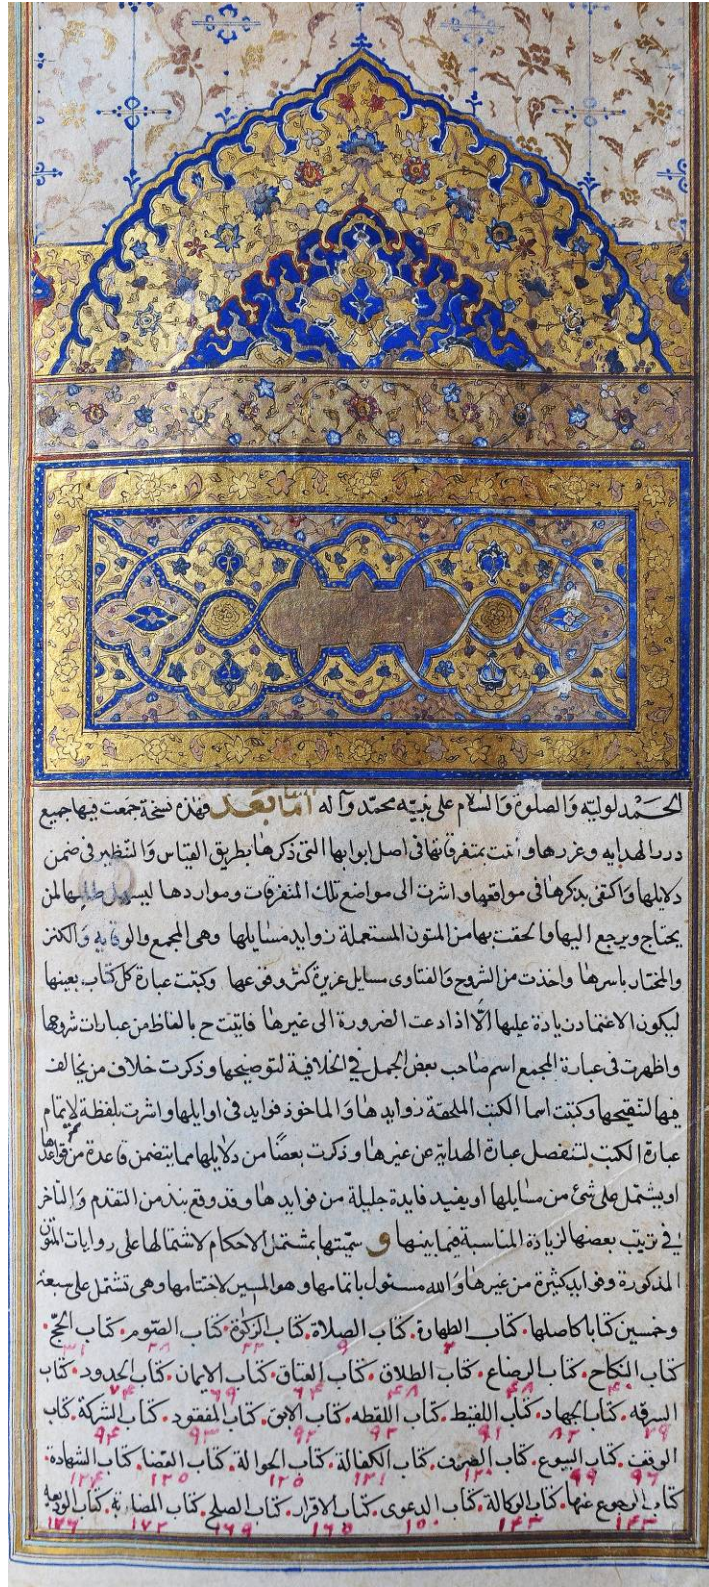 الحمد لوليه والصلوة والسلام على نبيه محمد وآله اما بعد فهذه نسخة جمعت فيها جميع
درر الهدايه وغررها واتت بمتفرقاتها فى اصل ابوابها التى ذكرها بطريق القياس والتنظير فى ضمن
دلايلها واكتفى بذكرها فى مواقعها واشرت الى مواضع تلك المتفرقات ومواردها ليسهل طلبها لمن
يحتاج ويرجع اليها والحقت بها من المتون المستعملة زوايد مسايلها وهى المجمع والوقايه والكنز
والمختار باسرها واخذت من الشروح والفتاوى مسايل عزيزة كثر وقوعها وكتبت عبارة كل كتاب بعينها
ليكون الاعتماد زيادة عليها الا اذا دعت الضرورة الى غيرها فاتيت ح بالفاظ من عبارات شروحها
واظهرت فى عبارة المجمع اسم صاحب بعض الجمل في الخلافية لتوضيحها وذكرت خلاف من يخالف
فيها لتنقيحها وكتبت اسما الكتب الملحقة زوايدها والماخوذ فوايد فى اوايلها واشرت بلفظة لاتمام
عبارة الكتب لتنفصل عبارة الهداية عن غيرها وذكرت بعضا من دلايلها مما يتضمن قاعدة من قواعدها
او يشتمل على شئ من مسايلها او يفيد فايدة جليلة من فوايدها وقد وقع نبذ من التقدم والتاخر
في ترتيب بعضها لزيادة المناسبة فيما بينها و سميتها بمشتمل الاحكام لاشتمالها على روايات المتون
المذكورة وفوايد كثيرة من غيرها والله مسئول باتمامها وهو الميسر لاختتامها وهى تشتمل على سبعة
وخمسين كتابا كاصلها كتاب الطهارة كتاب الصلاة كتاب الزكوة كتاب الصوم كتاب الحج
۲ ۹ ۲۲ ۲۸ ۳۱
كتاب النكاح كتاب الرضاع كتاب الطلاق كتاب العتاق كتاب الايمان كتاب الحدود كتاب
۴۰ ۴۸ ۴۸ ۶۴ ۶۹ ۷۴
السرقه كتاب الجهاد كتاب اللقيط كتاب اللقطه كتاب الابق كتاب المفقود كتاب الشركة كتاب
۷۹ ۸۲ ۹۱ ۹۲ ۹۲ ۹۳ ۹۴
الوقف كتاب البيوع كتاب الصرف كتاب الكفالة كتاب الحوالة كتاب القضا كتاب الشهادة
۹۶ ۹۹ ۱۲۰ ۱۲۱ ۱۲۵ ۱۲۵ ۱۳۴
كتاب الرجوع عنها كتاب الوكالة كتاب الدعوى كتاب الاقرار كتاب الصلح كتاب المضاربة كتاب الوديعة
۱۴۳ ۱۴۳ ۱۵۰ ۱۶۵ ۱۶۹ ۱۷۲ ۱۷۶